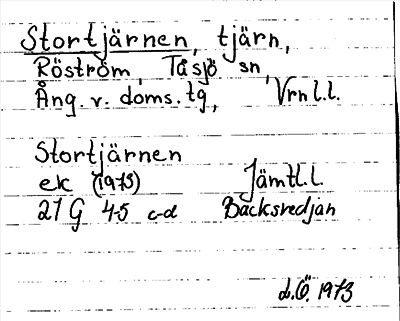 Stortjärnen, tjärn,
Röström, Tåsjö sn,
Ång. v. doms. tg, Vrnl.l.
Stortjärnen
ek (1973) Jämtl.l.
21 G 4-5 c-d Bäcksvedjan
L.Ö. 1973